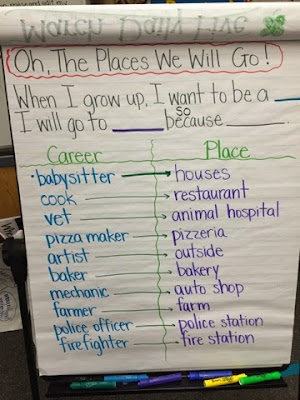 March Daily Five
Oh, The Places We Will Go!
When I grow up, I want to be a ___
I will go to ___ so because ___.
Career Place
babysitter houses
cook restaurant
vet animal hospital
pizza maker pizzeria
artist outside
baker bakery
mechanic auto shop
farmer farm
police officer police station
firefighter fire station